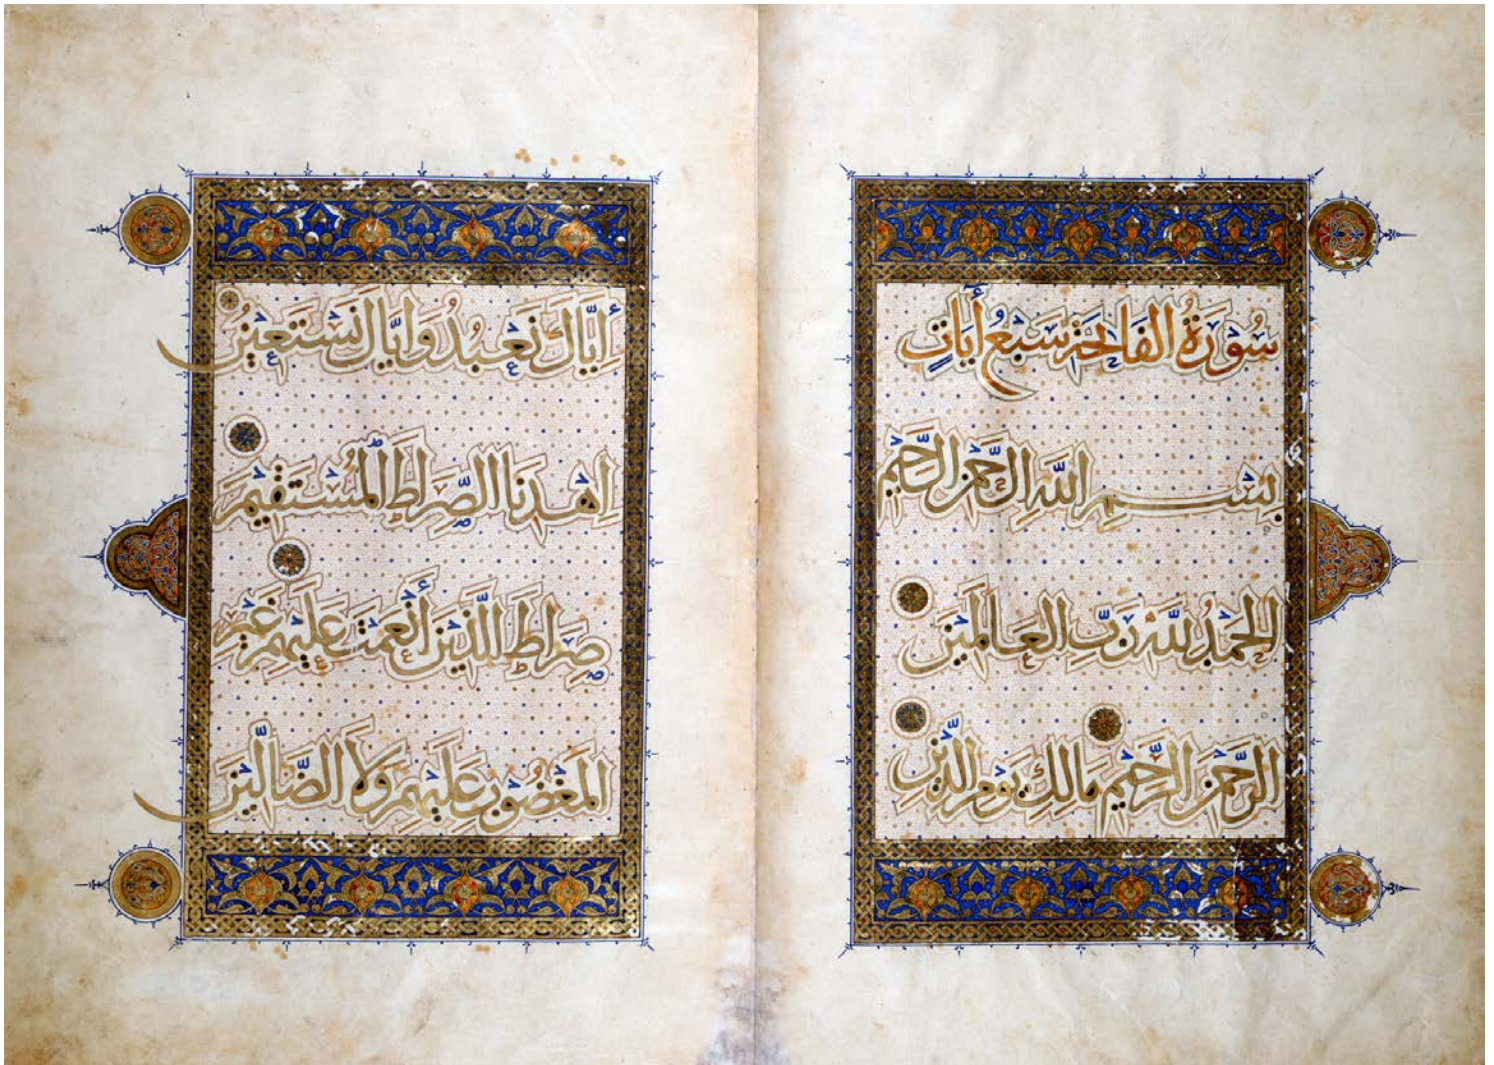 سُورَةُ الفَاتِحَةِ سَبْعُ أَيَاتٍ
بِسْمِ اللَّهِ الرَّحْمَنِ الرَّحِيمِ
الحَمْدُ لِلَّهِ رَبِّ العَالَمِينَ
الرَّحْمَنِ الرَّحِيمِ مَالِكِ يَوْمِ الدِّينِ
إِيَّاكَ نَعْبُدُ وَإِيَّاكَ نَسْتَعِينُ
اِهْدِنَا الصِّرَاطَ المُسْتَقِيمَ
صِرَاطَ الَّذِينَ أَنْعَمْتَ عَلَيْهِمْ غَيْرِ
المَغْضُوبِ عَلَيْهِمْ وَلَا الضَّالِّينَ